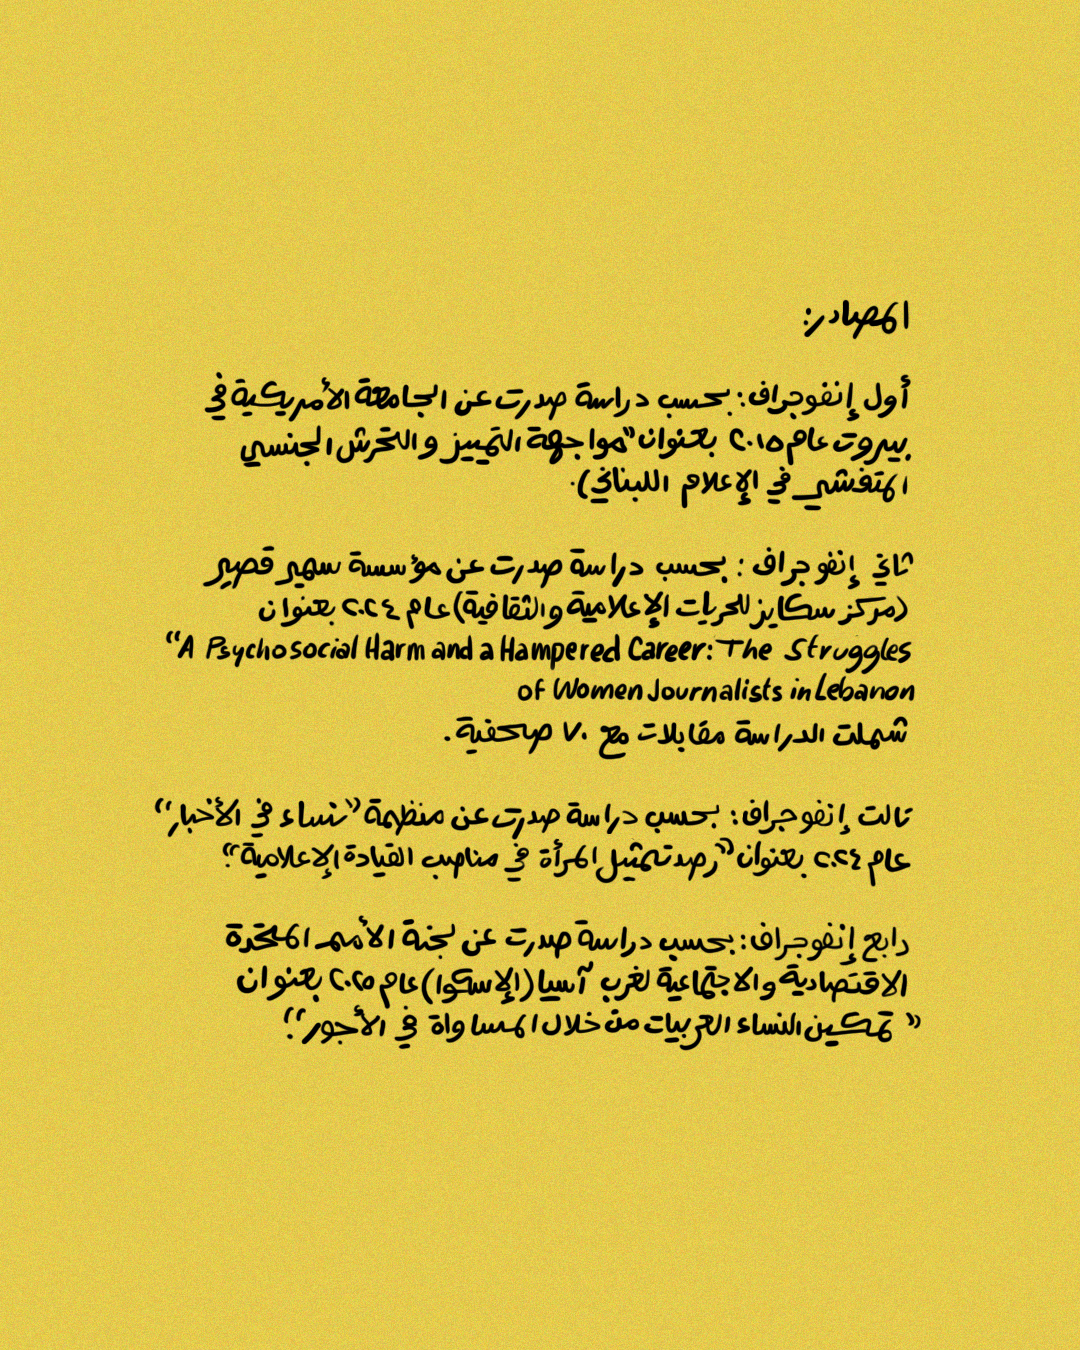 المصادر:
أول إنفوجراف: بحسب دراسة صدرت عن الجامعة الأمريكية في
بيروت عام ٢٠١٥ بعنوان "مواجهة التمييز والتحرش الجنسي
المتفشي في الإعلام اللبناني).
ثاني إنفوجراف: بحسب دراسة صدرت عن مؤسسة سمير قصير
(مركز سكايز للحريات الإعلامية والثقافية) عام ٢٠٢٤ بعنوان
"A Psychosocial Harm and a Hampered Career: The Struggles
of Women Journalists in Lebanon
شملت الدراسة مقابلات مع ٧٠ صحفية.
تالت إنفوجراف: بحسب دراسة صدرت عن منظمة "نساء في الأخبار"
عام ٢٠٢٤ بعنوان "رصد تمثيل المرأة في مناصب القيادة الإعلامية".
رابع إنفوجراف: بحسب دراسة صدرت عن لجنة الأمم المتحدة
الاقتصادية والاجتماعية لغرب آسيا (الإسكوا) عام ٢٠٢٥ بعنوان
"تمكين النساء العربيات من خلال المساواة في الأجور".